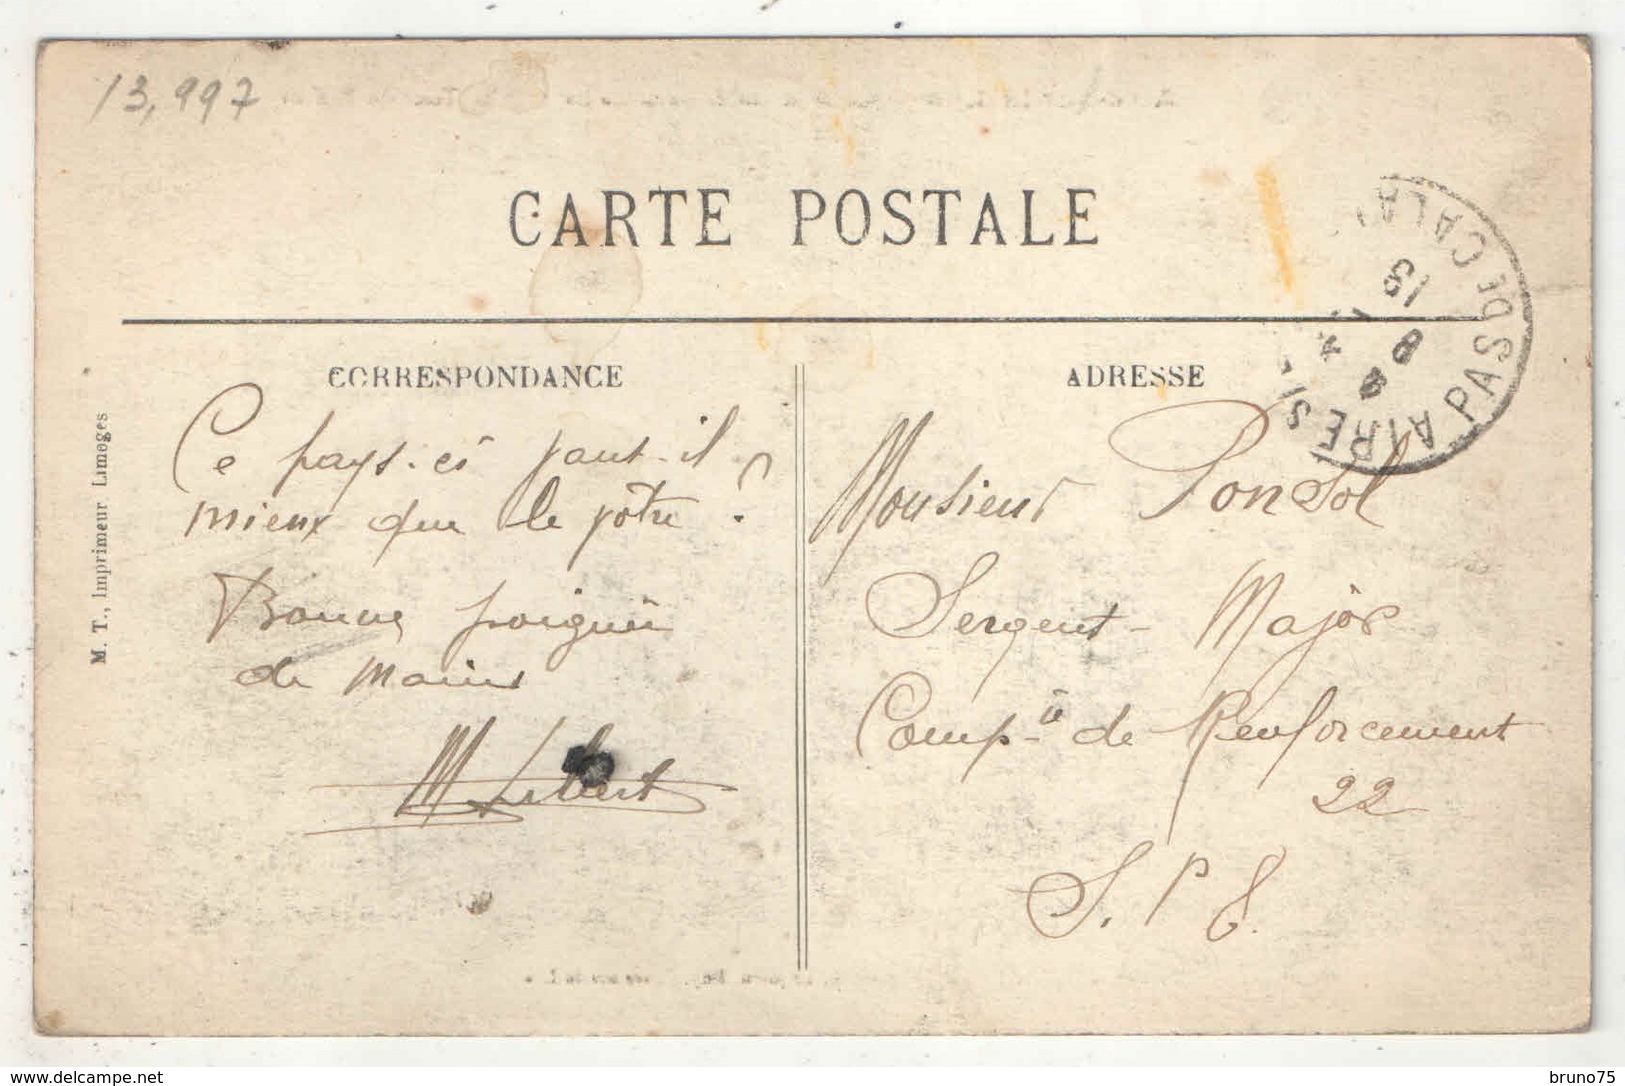 13,997
CARTE POSTALE
CORRESPONDANCE
ADRESSE
AIRES
PAS DE CALAI
13
8
4
M. T., Imprimeur Limoges
Ce pays-ci vaut-il
mieux que le vôtre ?
Bonne poignée
de mains
M
Monsieur Ponsol
Sergent-Major
Comp ie de Renforcement
22
S. P 8.
www.delcampe.net
bruno75